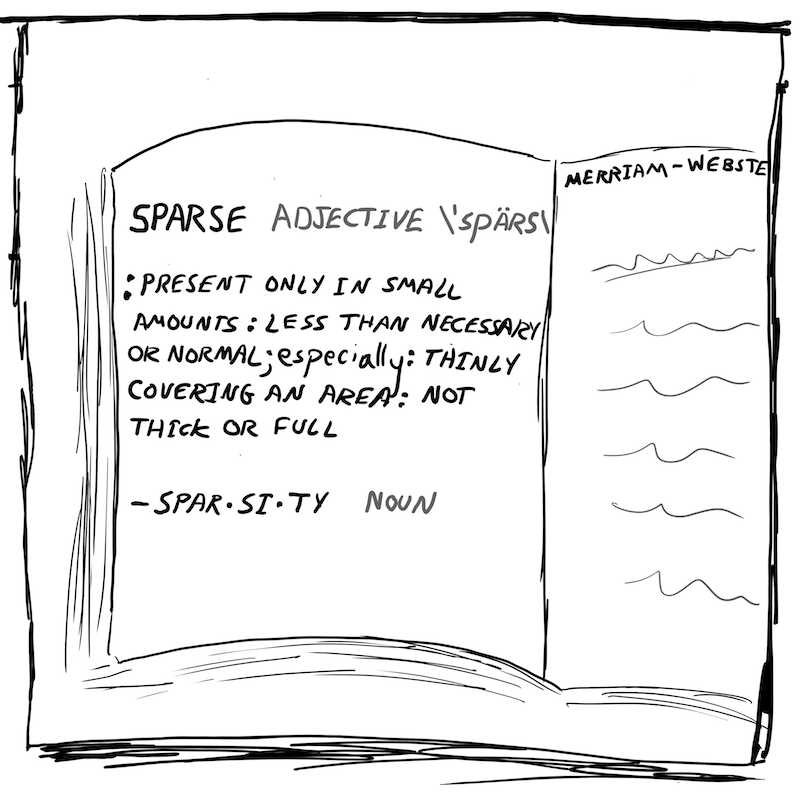 SPARSE ADJECTIVE \'spärs\
: PRESENT ONLY IN SMALL
AMOUNTS : LESS THAN NECESSARY
OR NORMAL; especially: THINLY
COVERING AN AREA: NOT
THICK OR FULL
– SPAR·SI·TY NOUN
MERRIAM-WEBSTE